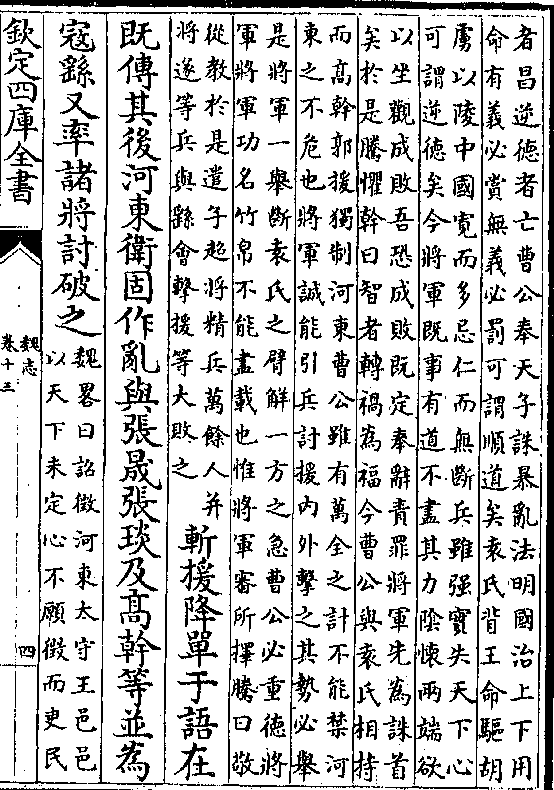 者昌逆德者亡曹公奉天子誅暴亂法明國治上下用
命有義必賞無義必罰可謂順道矣袁氏背王命驅胡
虜以陵中國寛而多忌仁而無斷兵雖强實失天下心
可謂逆德矣今將軍既事有道不盡其力陰懷兩端欲
以坐觀成敗吾恐成敗既定奉辭責罪將軍先為誅首
矣於是騰懼幹曰智者轉禍為福今曹公與袁氏相持
而高幹郭援獨制河東曹公雖有萬全之計不能禁河
東之不危也將軍誠能引兵討援内外擊之其勢必舉
是將軍一舉斷袁氏之臂解一方之急曹公必重德將
軍將軍功名竹帛不能盡載也惟將軍審所擇騰曰敬
從教於是遣子超將精兵萬餘人并
將遂等兵與繇會擊援等大敗之
斬援降單于語在
既傳其後河東衛固作亂與張晟張琰及高幹等並為
寇繇又率諸將討破之
魏畧曰詔徵河東太守王邑邑
以天下未定心不願徵而吏民
欽定四庫全書
魏志
卷十三
四